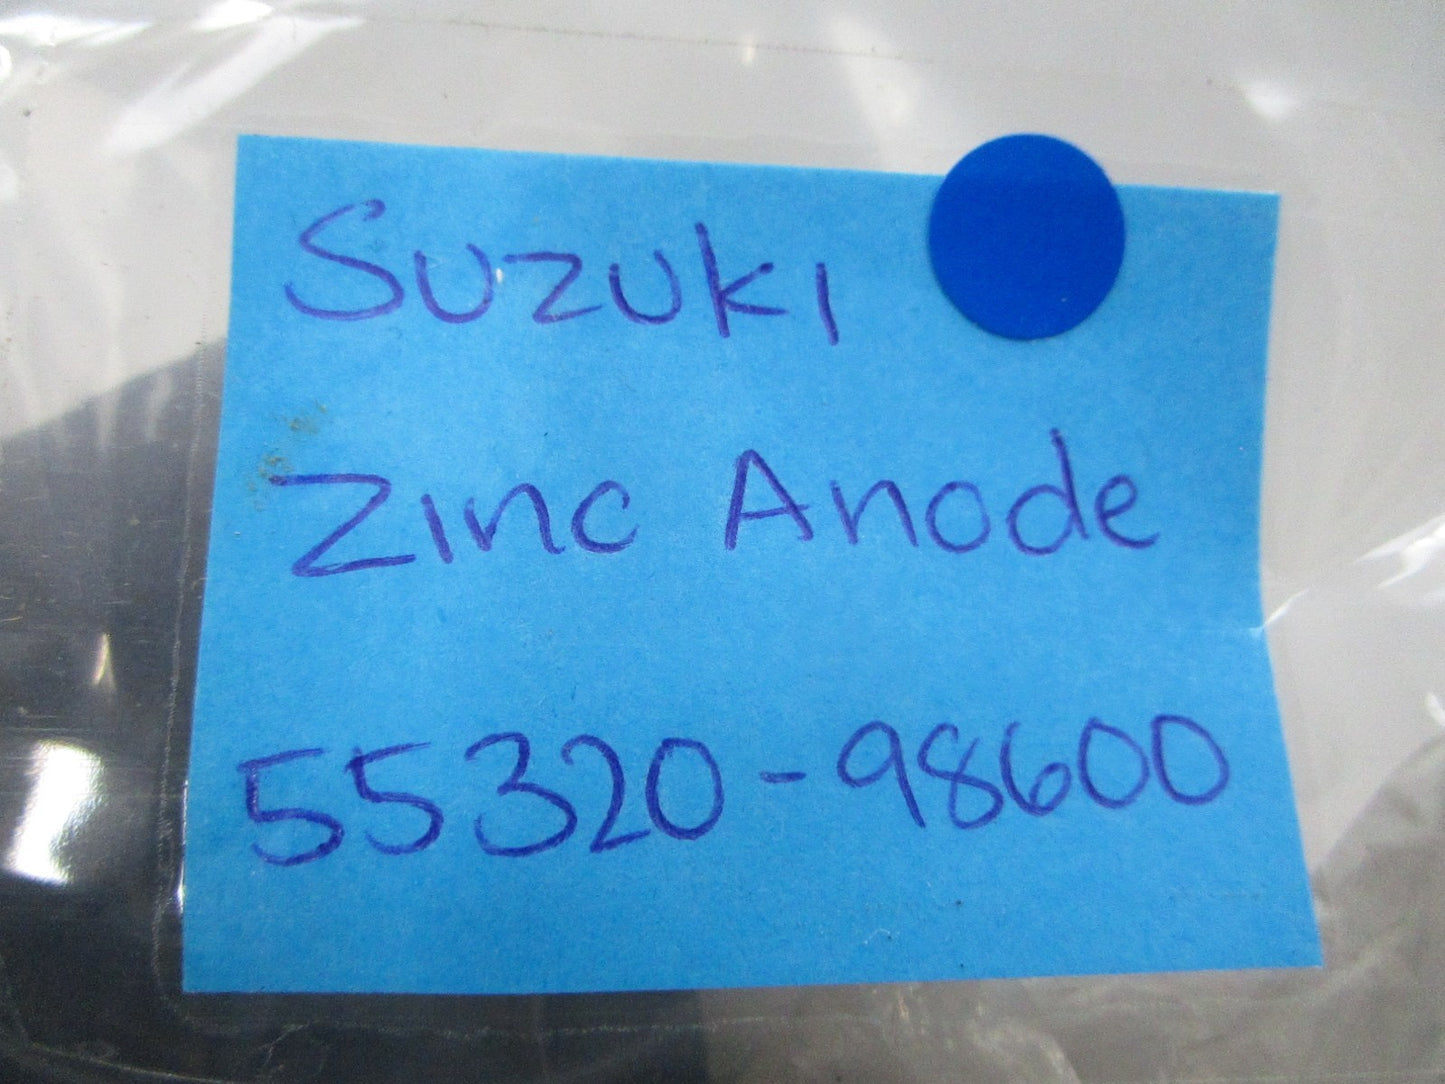 Suzuki
Zinc Anode
55320-98600